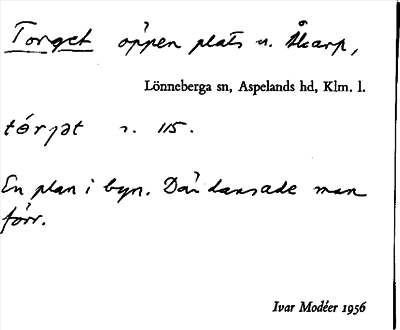 Torget öppen plats u. Åkarp,
Lönneberga sn, Aspelands hd, Klm. l.
tórjət s. 115.
En plan i byn. Där dansade man
förr.
Ivar Modéer 1956